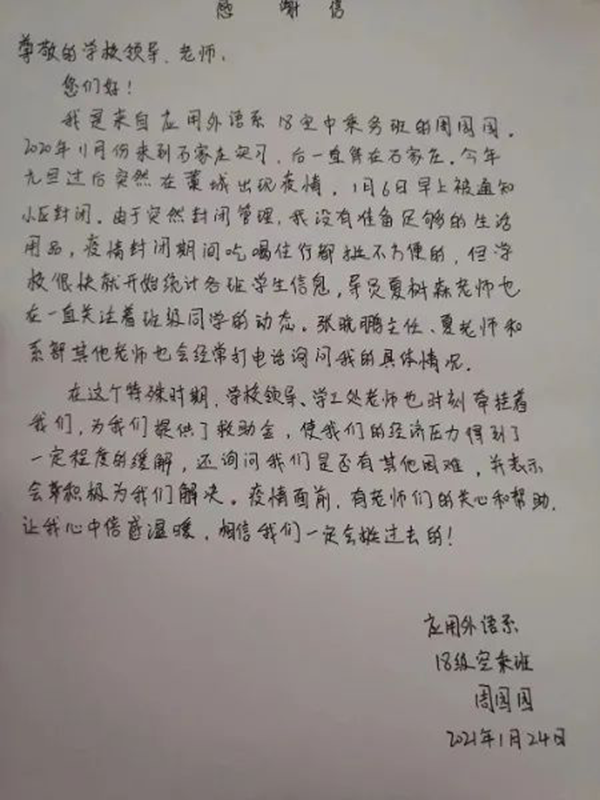 感谢信
尊敬的学校领导、老师:
您们好!
我是来自应用外语系18空中乘务班的周园园。
2020年11月份来到石家庄实习,后一直待在石家庄。今年
元旦过后突然在藁城出现疫情,1月6日早上被通知
小区封闭。由于突然封闭管理,我没有准备足够的生活
用品,疫情封闭期间吃喝住行都挺不方便的,但学
校很快就开始统计各班学生信息,导员夏树森老师也
在一直关注着班级同学的动态。张晓鹏主任、夏老师和
系部其他老师也会经常打电话询问我的具体情况。
在这个特殊时期,学校领导、学工处老师也时刻牵挂着
我们,为我们提供了救助金,使我们的经济压力得到了
一定程度的缓解,还询问我们是否有其他困难,并表示
会积极为我们解决。疫情面前,有老师们的关心和帮助,
让我心中倍感温暖,相信我们一定会挺过去的!
应用外语系
18级空乘班
周园园
2021年1月24日